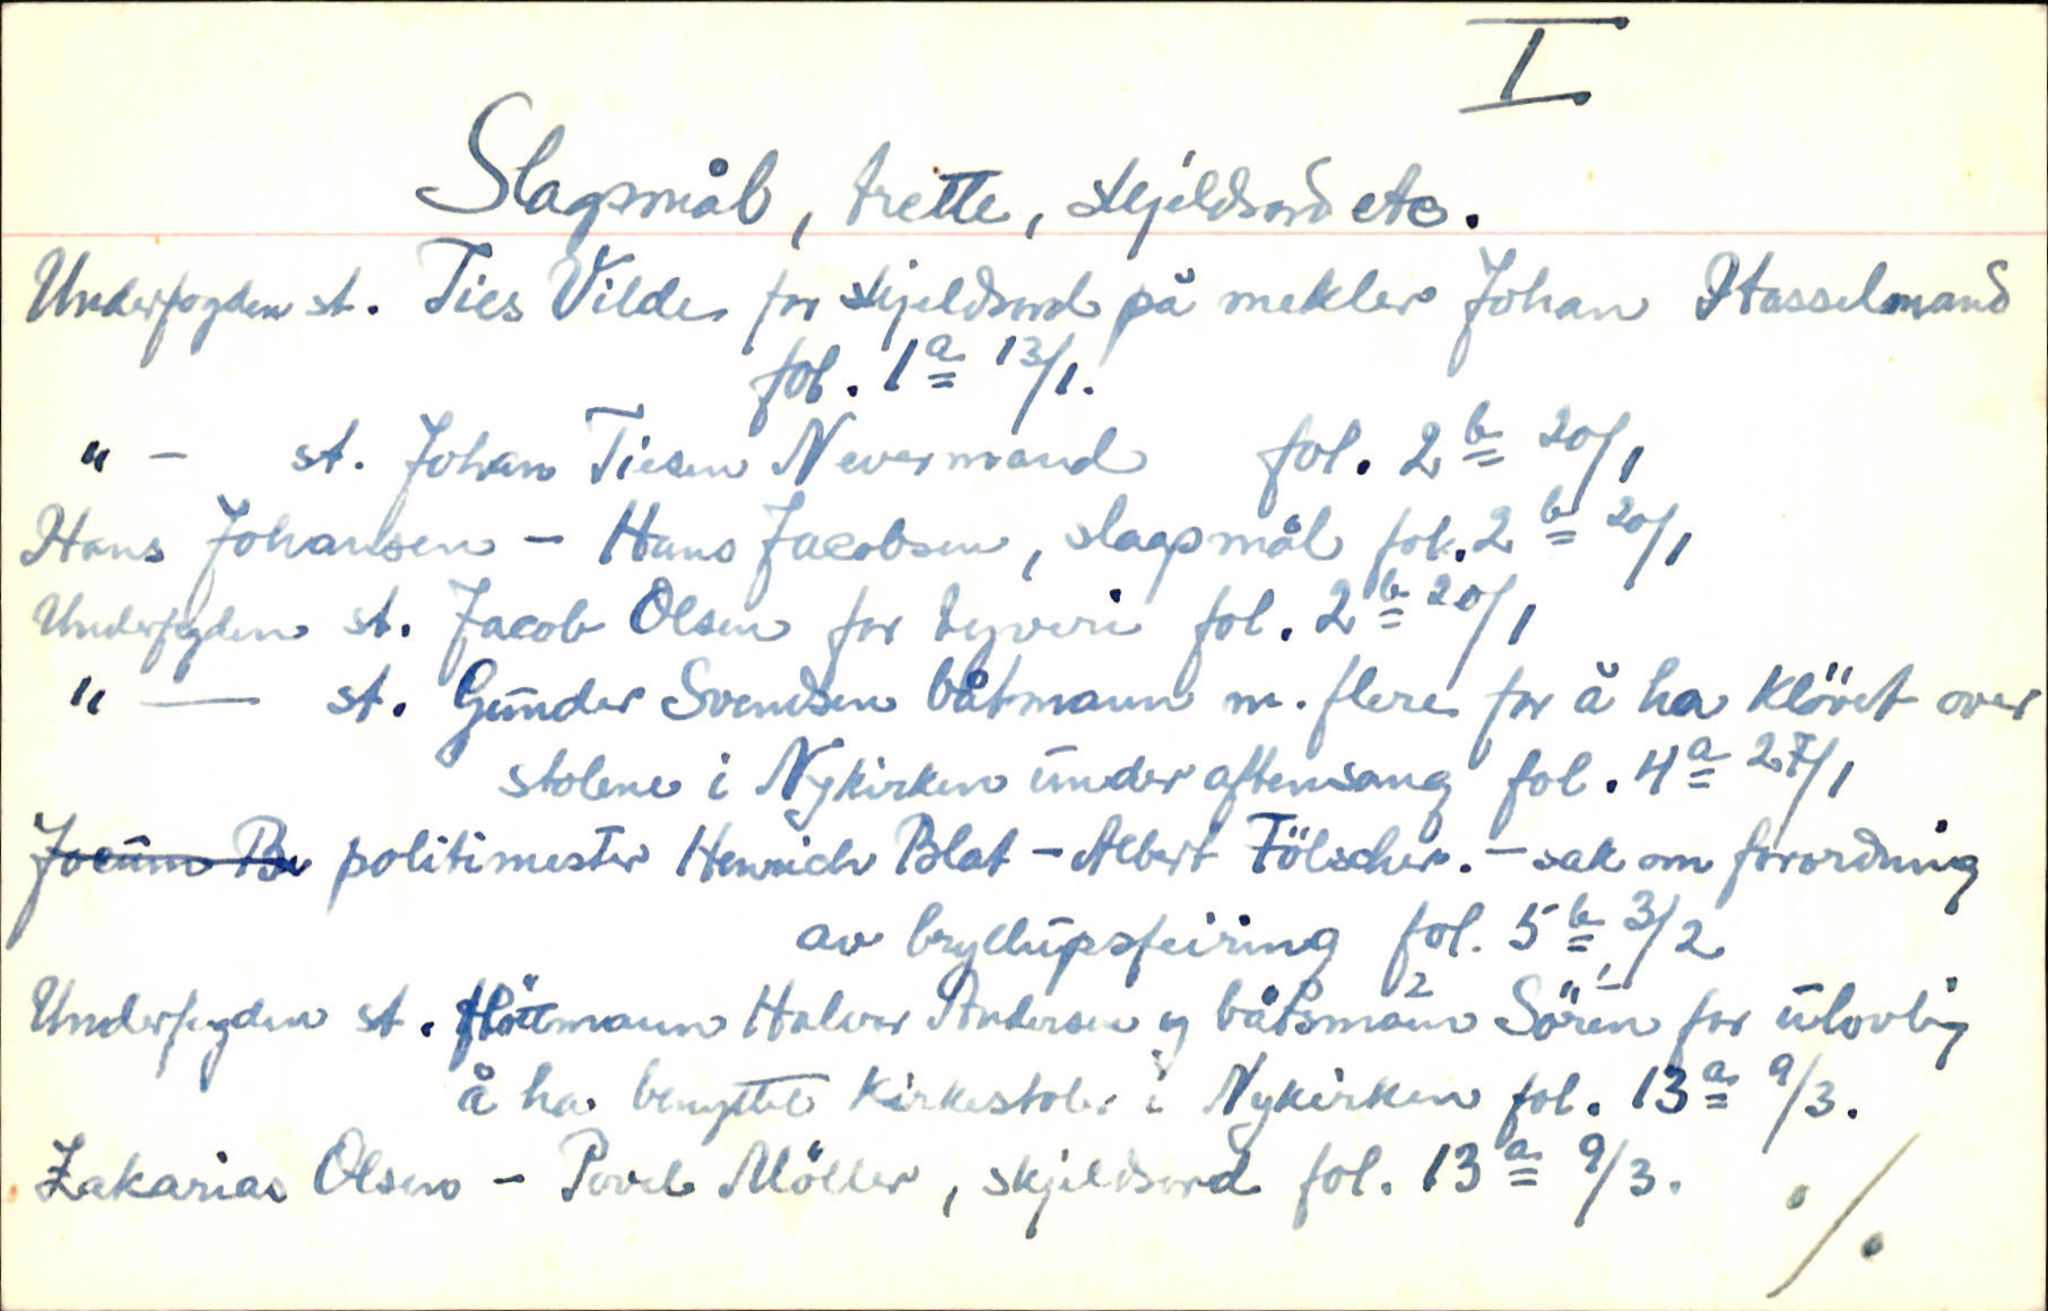 I
Slagsmål, trette, skjeldsord etc.
Underfogden st. Ties Vilde for skjeldsord på mekler Johan Hasselmand
fol. 1a 13/1.
" — st. Johan Tiesen Nevermand fol. 2b 20/1
Hans Johansen - Hans Jacobsen, slagsmål fol. 2b 20/1
Underfogden st. Jacob Olsen for tyveri fol. 2b 20/1
" — st. Gunder Svendsen båtmann m. flere for å ha klövet over
stolene i Nykirken under aftensang fol. 4a 27/1
Jocum Be politimester Henrich Blat - Albert Fölscher. - sak om forordning
av bryllupsfeiring fol. 5b 3/2
Underfogden st. flöttmann Halvor Andersen og båtsmann Sören for ulovlig
å ha benyttet kirkestoler i Nykirken fol. 13a 9/3.
Zakarias Olsen - Povel Möller, skjeldsord fol. 13a 9/3.
./.